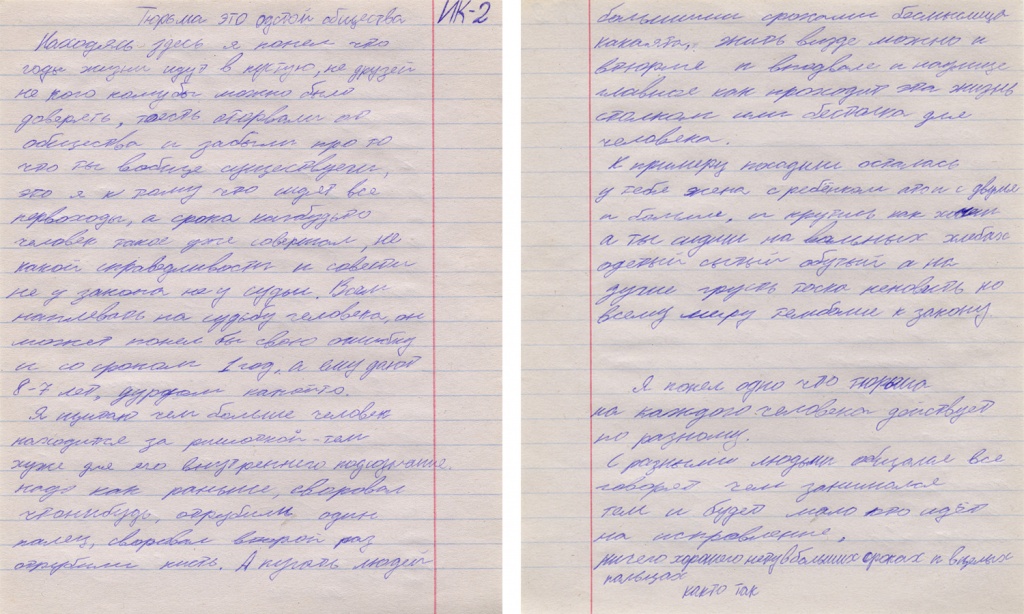 Тюрьма это одстой общества
ИК-2
Находясь здесь я понел что
годы жизни идут в пустую, не друзей
не кого комубы можно было
доверять, тоесть оторвали от
общества и забыли про то
что ты вообще существуеш,
это я к тому что идёт все
первоходы, а срока какбудьто
человек такое уже совершал, не
какой справедливости и совести
не у закона не у судьи. Всем
наплевать на судьбу человека, он
может понел бы свою ошибку
и со сроком 1 год, а ему дают
6-7 лет, дурдом какойто.
Я щитаю чем больше человек
находится за ришоткой - тем
хуже для его внутреннего подсознание.
надо как раньше, своровал
чтонибудь, отрубили один
палец, своровал второй раз
отрубили кисть. А пугать людей
большими сроками бесмыслица
какаято, жить везде можно и
втюрме и вподвале и наулице
главное как проходит эта жизнь
столком или бестолка для
человека.
К примеру посадили осталась
у тебя жена с ребёнком ато и с двумя
и больше, и крутись как хочиш
а ты сидиш на вольных хлебах
одетый сытый обутый а на
душе грусть тоска неновисть ко
всему миру темболие к закону
Я понел одно что тюрьма
на каждого человека действует
по разному.
С разными людьми общался все
говорят чем занимался
тем и будет мало кто идёт
на исправление,
ничего хорошего нету в больших сроках и в
пальцах
както так